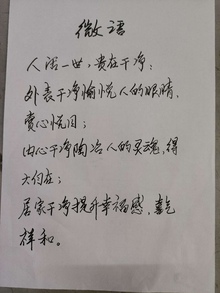 微语
人活一世，贵在干净；
外表干净愉悦人的眼睛，
赏心悦目；
内心干净陶冶人的灵魂，得
大自在；
居家干净提升幸福感，喜乾
祥和。